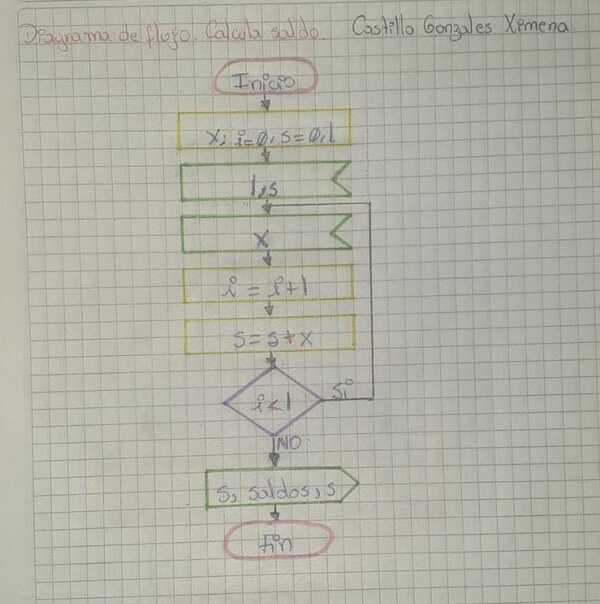 Diagrama de flujo. Calcula saldo. Castillo Gonzales Ximena
Inicio
x, i=0, s=0, l
l, s
x
i = i+1
s=s+x
i<l
Si
NO
s, saldos, s
Fin